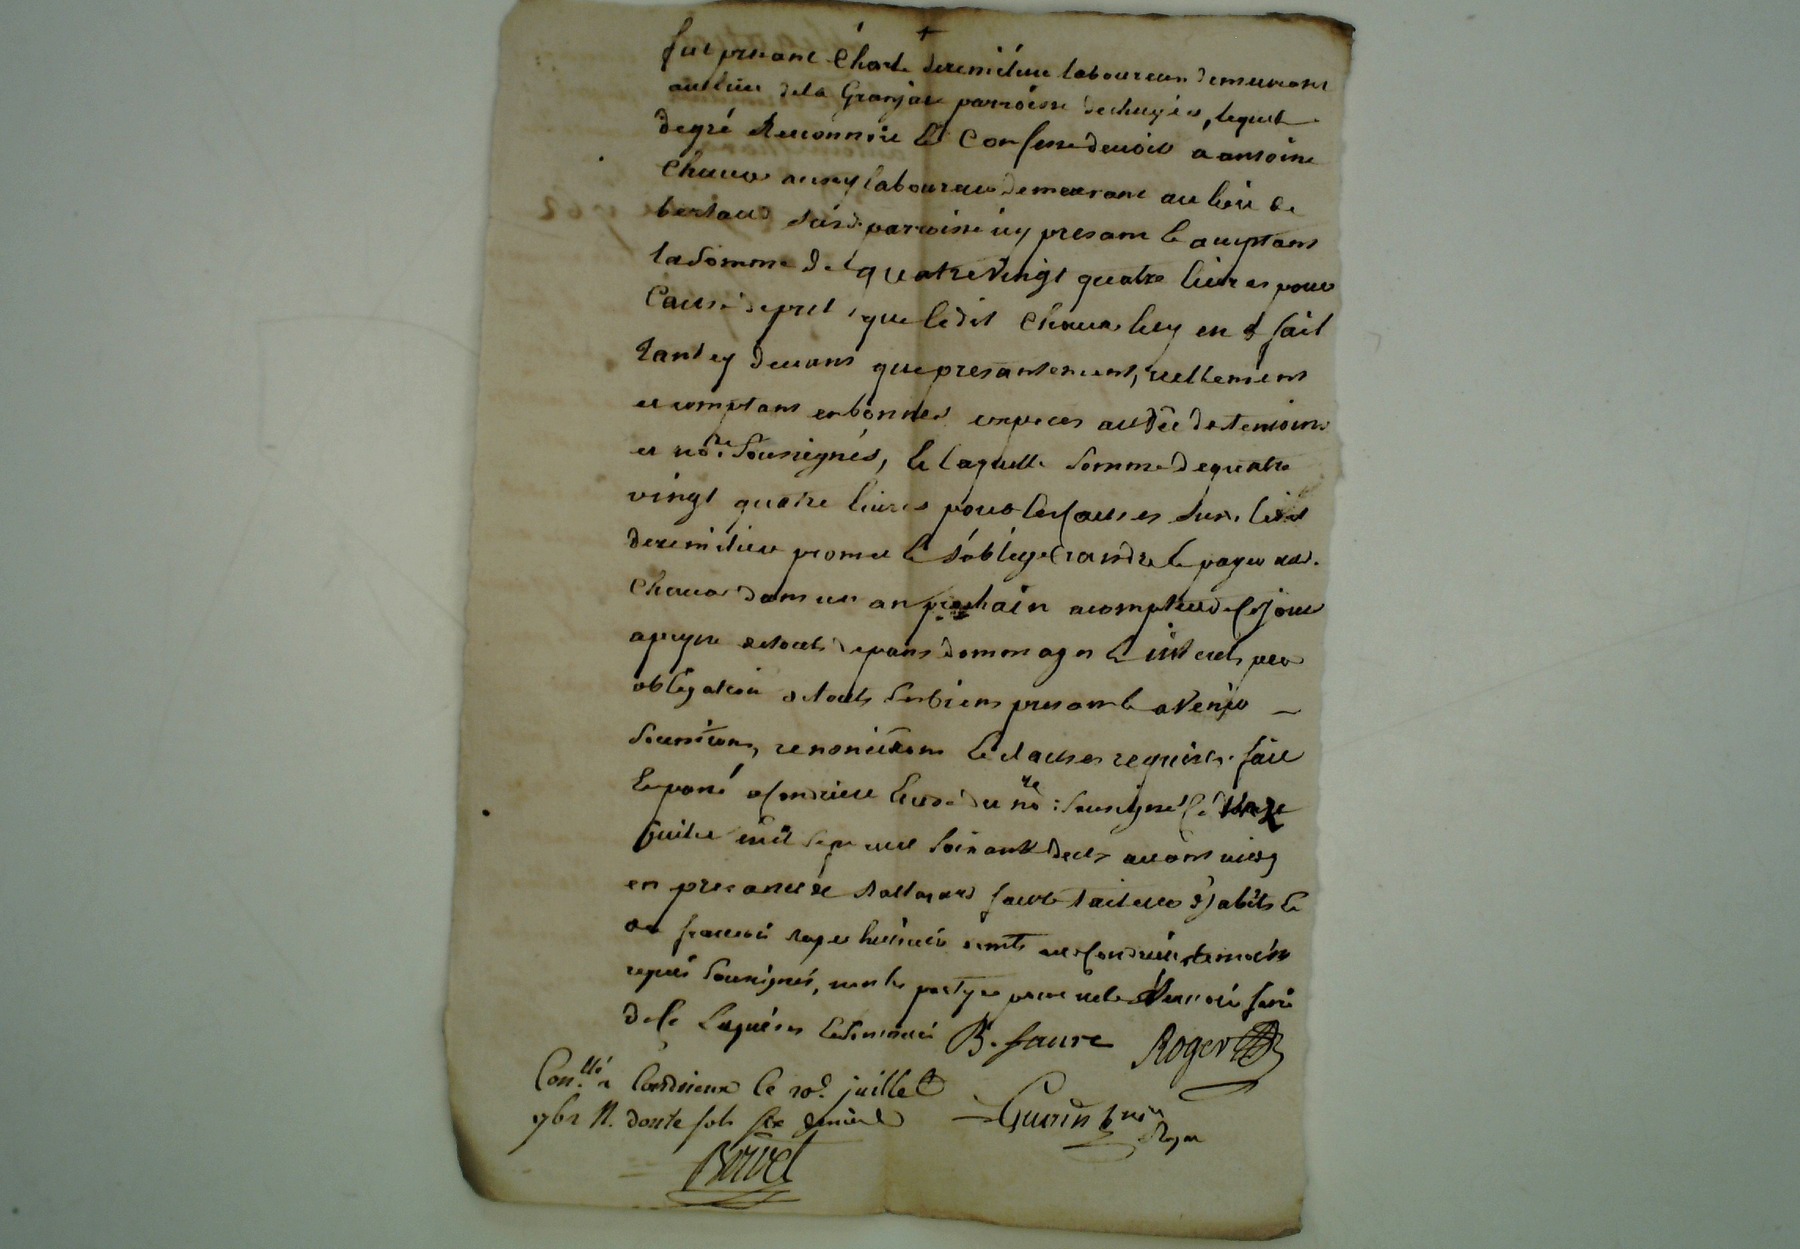 +
fut presant Charle deremilieu laboureur demeurant
au lieu de la Granjat parroisse de chuyés, lequel
de gré Reconnoit Et Confesse devoir a antoine
Chavas aussy laboureur demeurant au lieu de
bertaud susd. parroisse icy presant Et aceptant
la somme de quatre vingt quatre livres pour
Cause de pret que ledit Chavas luy en a fait
tant cy devant que presantement, reellement
et comptant en bonnes especes au vû des temoins
et nore. soussignés, Et laquelle somme de quatre
vingt quatre livres pour les causes sus. ledit
deremilieu promet Et s'oblige randre Et payer aud.
Chavas dans un an prochain a compter de ce jour
a peyne de touts depans dommages Et interets par
obligation de touts ses biens presant Et a venir
soumitions, renonciations Et clauses requises. fait
Et passé a Condrieu Etude du nore : soussigné Ce
juillet mil sept cent soixante deux avant midy
en presance de Baltazard faure tailleur d'habits Et
de francois Roger huissier demts. aud. Condrieu temoins
requis soussignés, non les partyes pour ne le sçavoir faire
de ce Enquises Et sommées B. faure Roger
Conllé. a Condrieux le 20e. juillet
1762 R. douze sols six deniers
Guerin nre
Royal